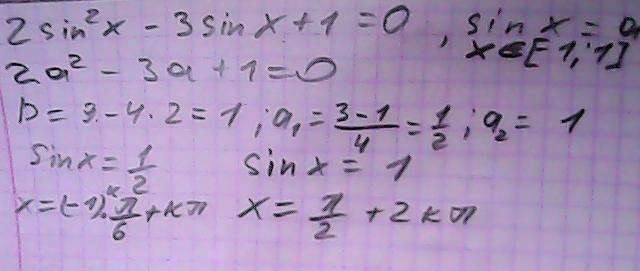 2sin²x - 3sinx + 1 = 0, sin x = a
x ∈ [1; 1]
2a² - 3a + 1 = 0
D = 9 - 4·2 = 1; a₁ = (3-1)/4 = 1/2; a₂ = 1
sinx = 1/2 sinx = 1
x = (-1)ᵏ π/6 + kπ x = π/2 + 2kπ